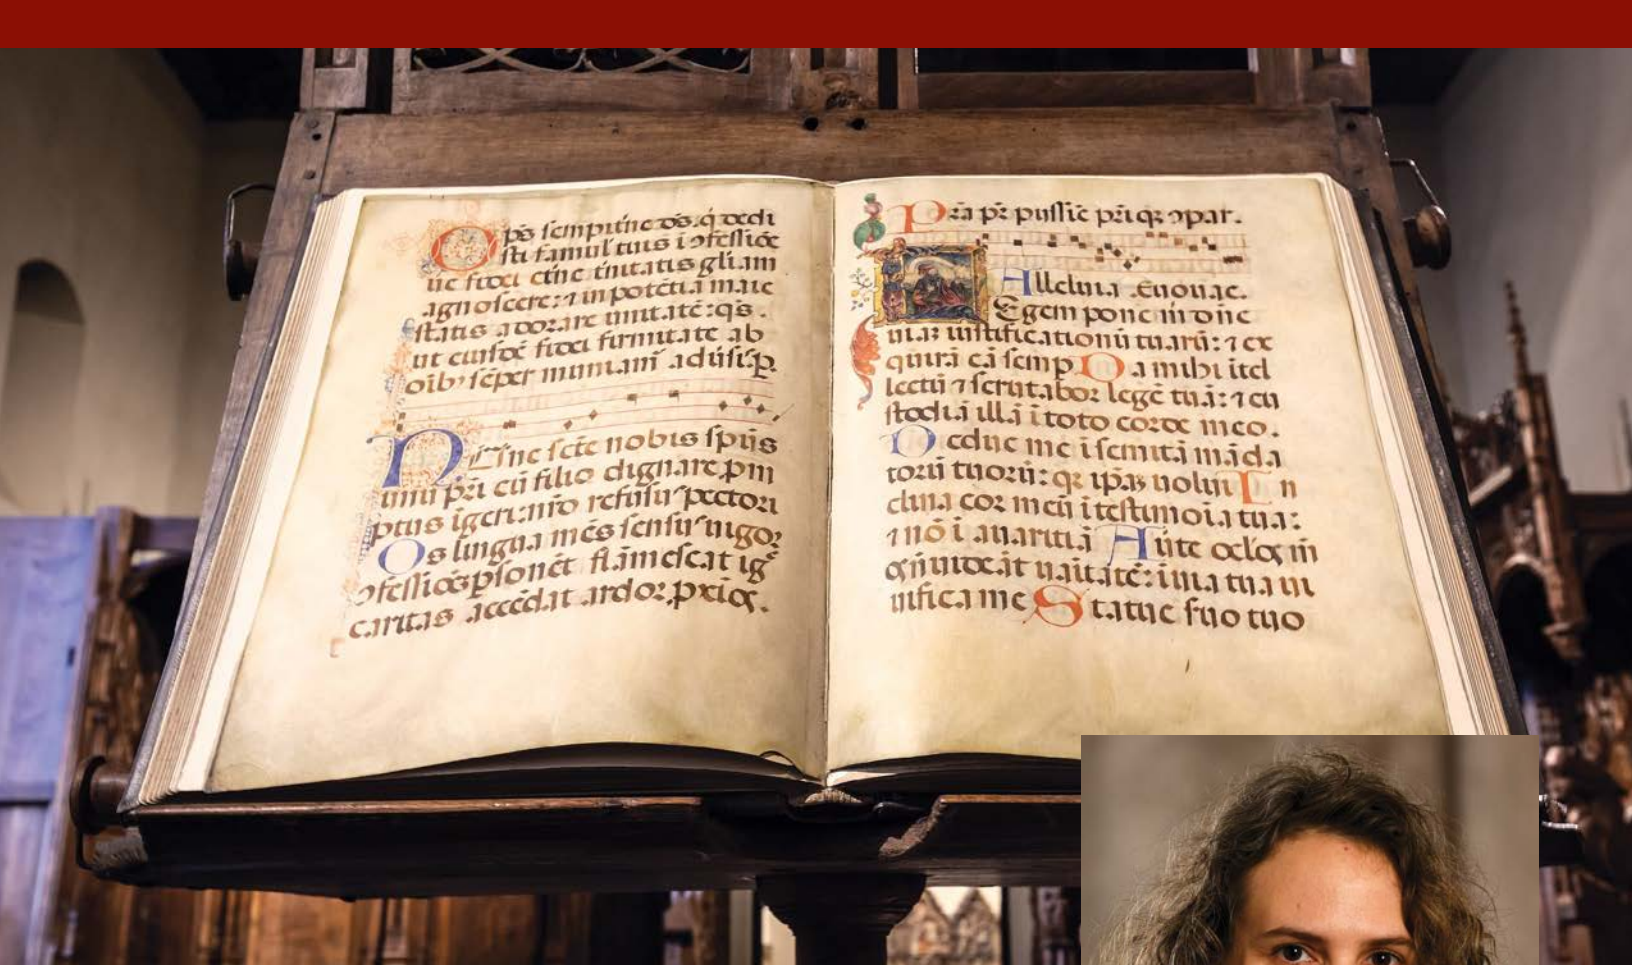 Op̄s sempit̄ne d̄s. q̄ dedi
sti famul' tuis ī ↄfessiōe
ūe fidei et̄ne t̄nitatis gl̄iam
agnoscere: ⁊ in potētia maie
statis adorare unitatē: q̄s.
ut eiusdē fidei firmitate ab
oib; sēper muniam̄ adūsis. p.
Nūnc sc̄te nobis sp̄us
unū p̄ri cū filio dignare ꝓm
ptus īgeri n̄ro refusu pectori
Os lingua mēs sensu uigor
ↄfessiōes psonēt flāmescat ig
caritas accēdat ardor ꝓxios.
Pr̄a p̄r piissīe p̄riq; ↄpar.
Alleluia .Euouae.
Egem pone m̄ dn̄e
uiā iustificationū tuarū: ⁊ ex
quirā eā semp Da mihi ītel
lectū ⁊ scrutabor legē tuā: ⁊ cu
stodiā illā ī toto corde meo.
Deduc me ī semitā māda
torū tuorū: q; ip̄aȝ uolui In
clina cor meū ī testimoīa tua:
⁊ nō ī auaritiā Aute oclos m̄
os n̄ uideāt uaitatē: ī uia tua ui
uifica me Statue suo tuo